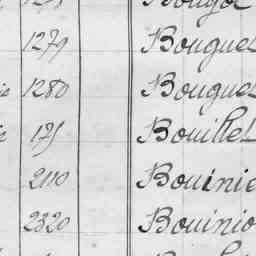 1279 Bougue
1280 Bougue
175 Bouillet
2110 Bouinie
2320 Bouinio